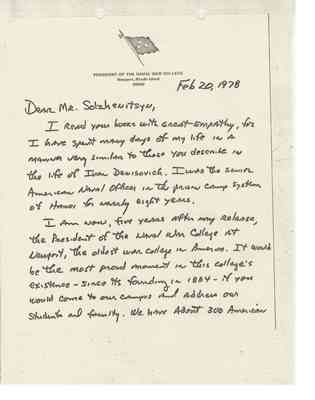 PRESIDENT OF THE NAVAL WAR COLLEGE
Newport, Rhode Island
02840
Feb 20, 1978
Dear Mr. Solzhenitsyn,
I read your books with great empathy, for
I have spent many days of my life in a
manner very similar to those you describe in
the life of Ivan Denisovich. I was the senior
American Naval Officer in the prison camp system
of Hanoi for nearly eight years.
I am now, five years after my release,
the President of the Naval War College at
Newport, the oldest war college in America. It would
be the most proud moment in this college's
existence - since its founding in 1884 - if you
would come to our campus and address our
students and faculty. We have about 300 American